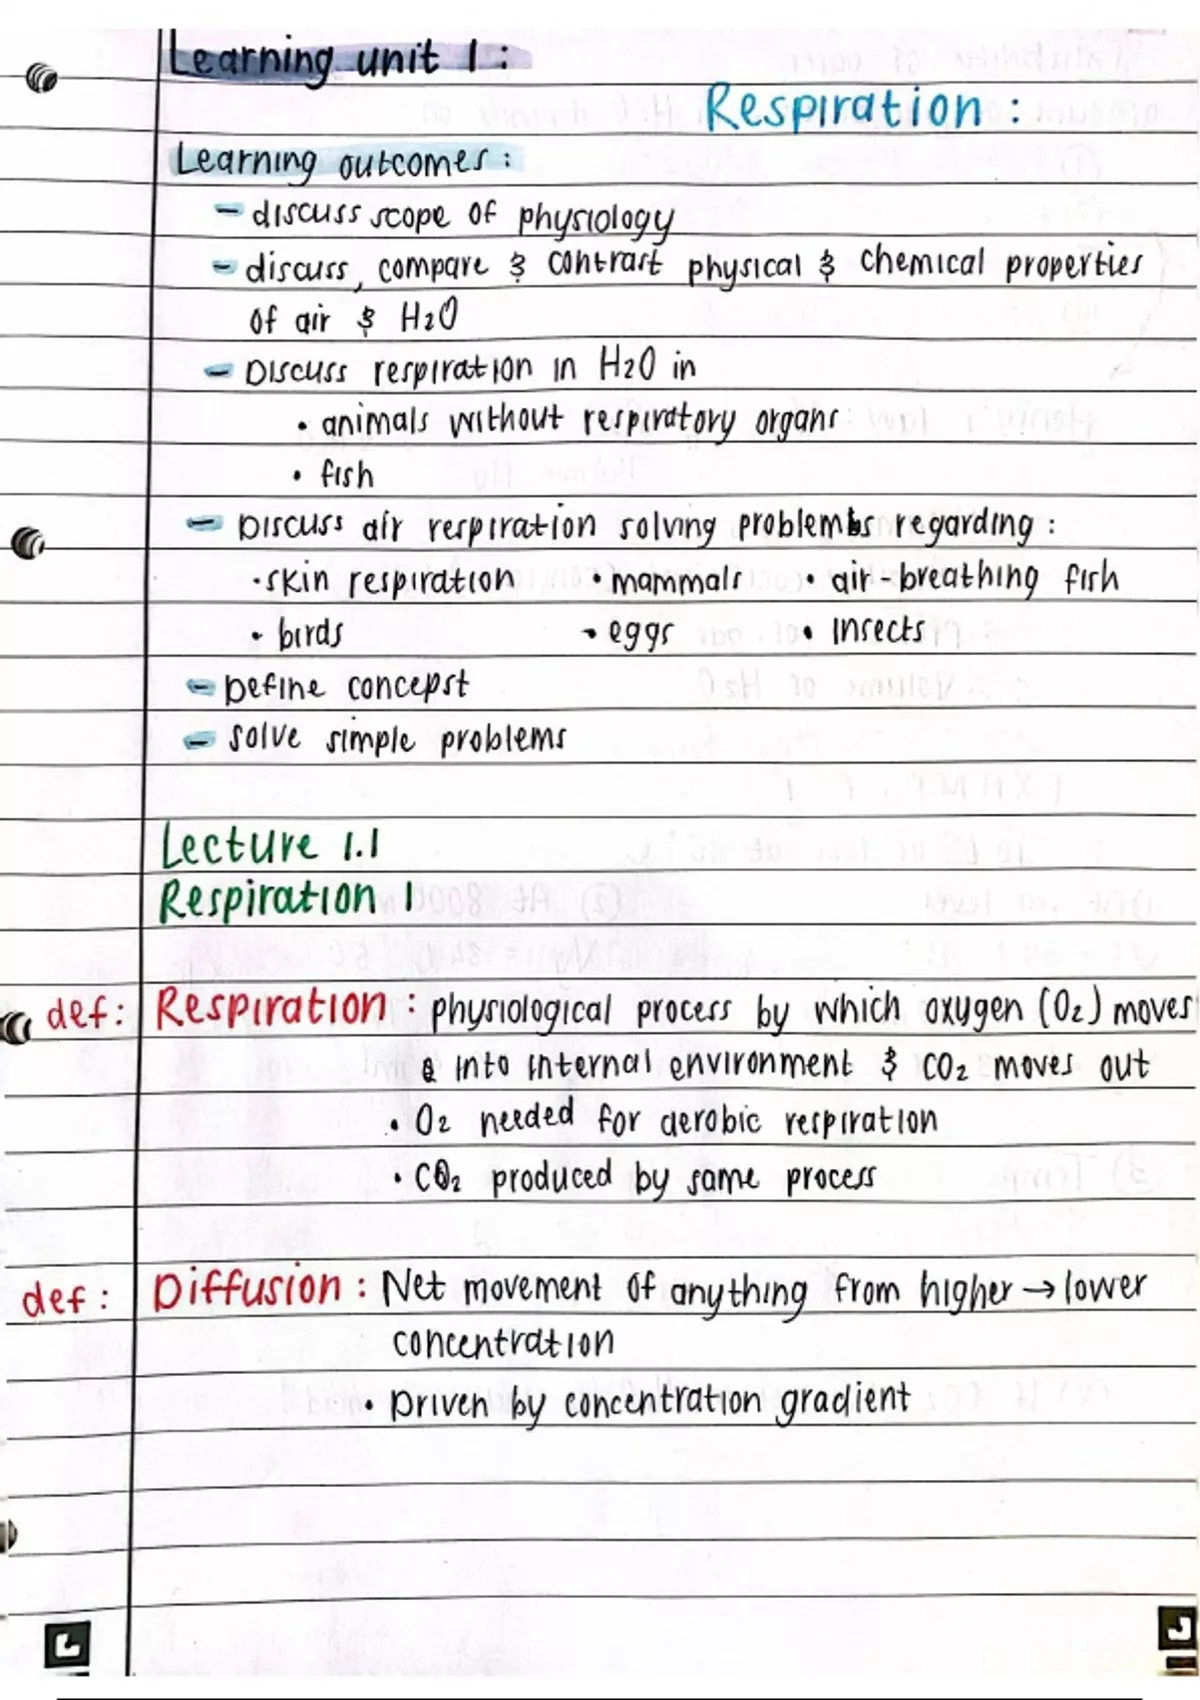 Learning unit 1:
Respiration:
Learning outcomes:
- discuss scope of physiology
- discuss, compare & contrast physical & chemical properties
of air & H2O
- Discuss respiration in H2O in
• animals without respiratory organs
• fish
- Discuss air respiration solving problems regarding:
• skin respiration • mammals • air-breathing fish
• birds • eggs • insects
- Define concepst
- solve simple problems
Lecture 1.1
Respiration 1
def: Respiration: physiological process by which oxygen (O2) moves
into internal environment & CO2 moves out
• O2 needed for aerobic respiration
• CO2 produced by same process
def: Diffusion: Net movement of anything from higher → lower
concentration
• Driven by concentration gradient